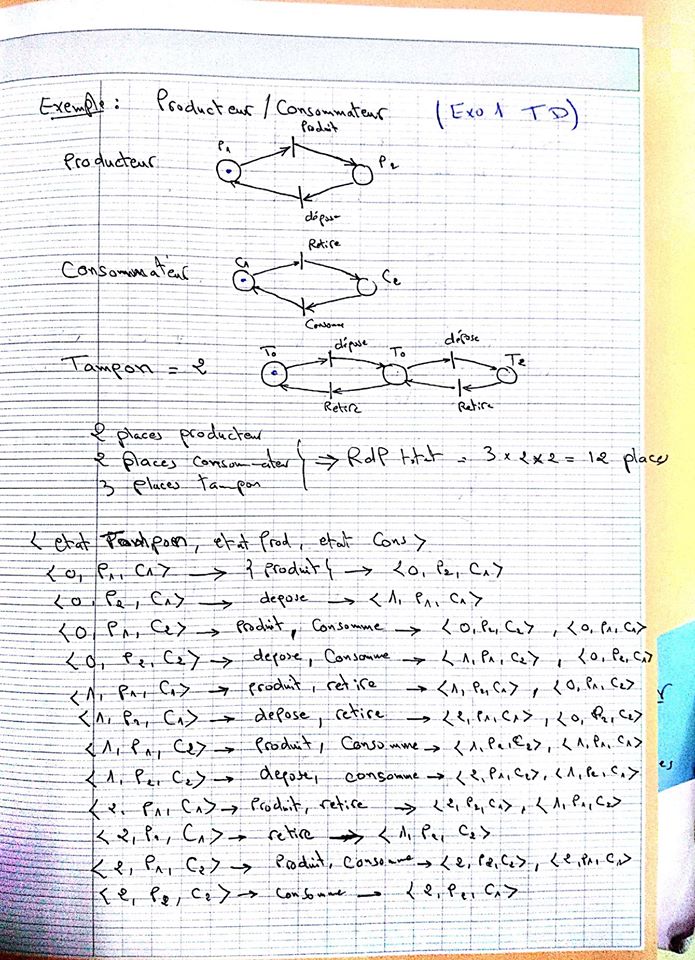 Exemple : Producteur / Consommateur (Exo 1 TD)
Produit
P1 P2
Producteur
dépose
Retire
C1 C2
Consommateur
Consomme
dépose dépose
T0 T0 T2
Tampon = 2
Retire Retire
2 places producteur
2 places consommater } => RdP total = 3 x 2 x 2 = 12 places
3 places tampon
< etat Tampon, etat Prod, etat Cons >
<0, P1, C1> → { produit { → <0, P2, C1>
<0, P2, C1> → depose → <1, P1, C1>
<0, P1, C2> → Produit, Consomme → <0, P2, C2> , <0, P1, C1>
<0, P2, C2> → depose, Consomme → <1, P1, C2> , <0, P2, C1>
<1, P1, C1> → produit, retire → <1, P2, C1> , <0, P1, C2>
<1, P2, C1> → depose, retire → <2, P1, C1> , <0, P2, C2>
<1, P1, C2> → Produit, Consomme → <1, P2, C2> , <1, P1, C1>
<1, P2, C2> → depose, consomme → <2, P1, C2>, <1, P2, C1>
<2, P1, C1> → Produit, retire → <2, P2, C1> , <1, P1, C2>
<2, P2, C1> → retire → <1, P2, C2>
<2, P1, C2> → Produit, Consomme → <2, P2, C2> , <2, P1, C1>
<2, P2, C2> → Consomme → <2, P2, C1>